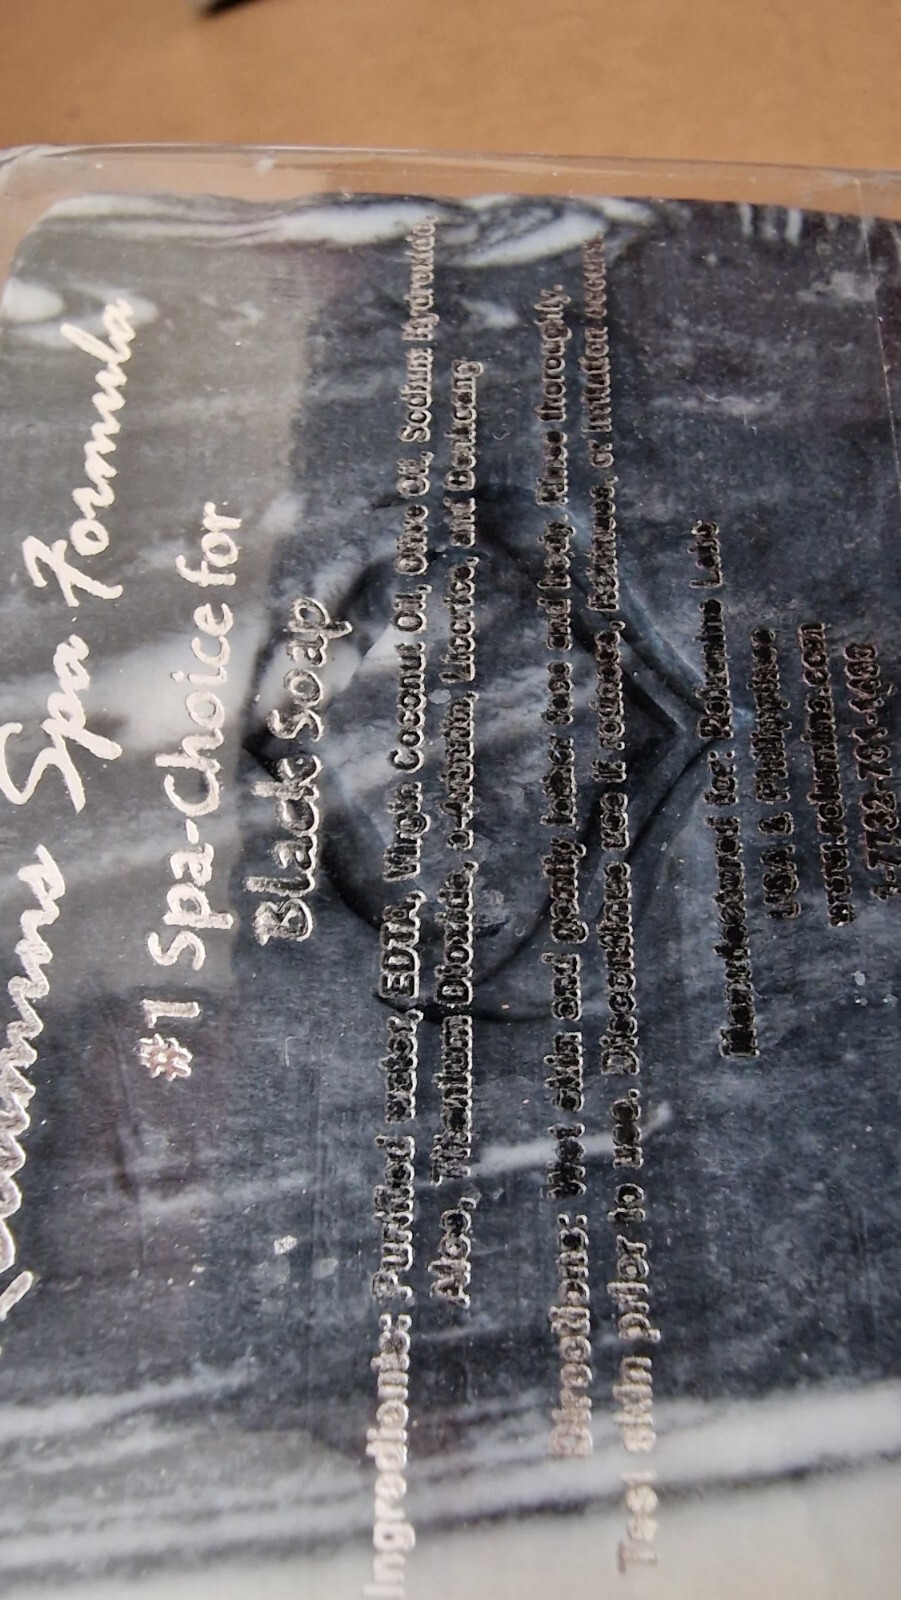 Spa Formula
#1 Spa-Choice for
Black Soap
Ingredients: Purified water, EDTA, Virgin Coconut Oil, Olive Oil, Sodium Hydroxide,
Aloe, Titanium Dioxide, Licorice, and
Directions: Wet skin and gently lather face and body. Rinse thoroughly.
Test skin prior to use. Discontinue use if redness, or irritation occurs.
Manufactured for: Labs
USA & Philippines